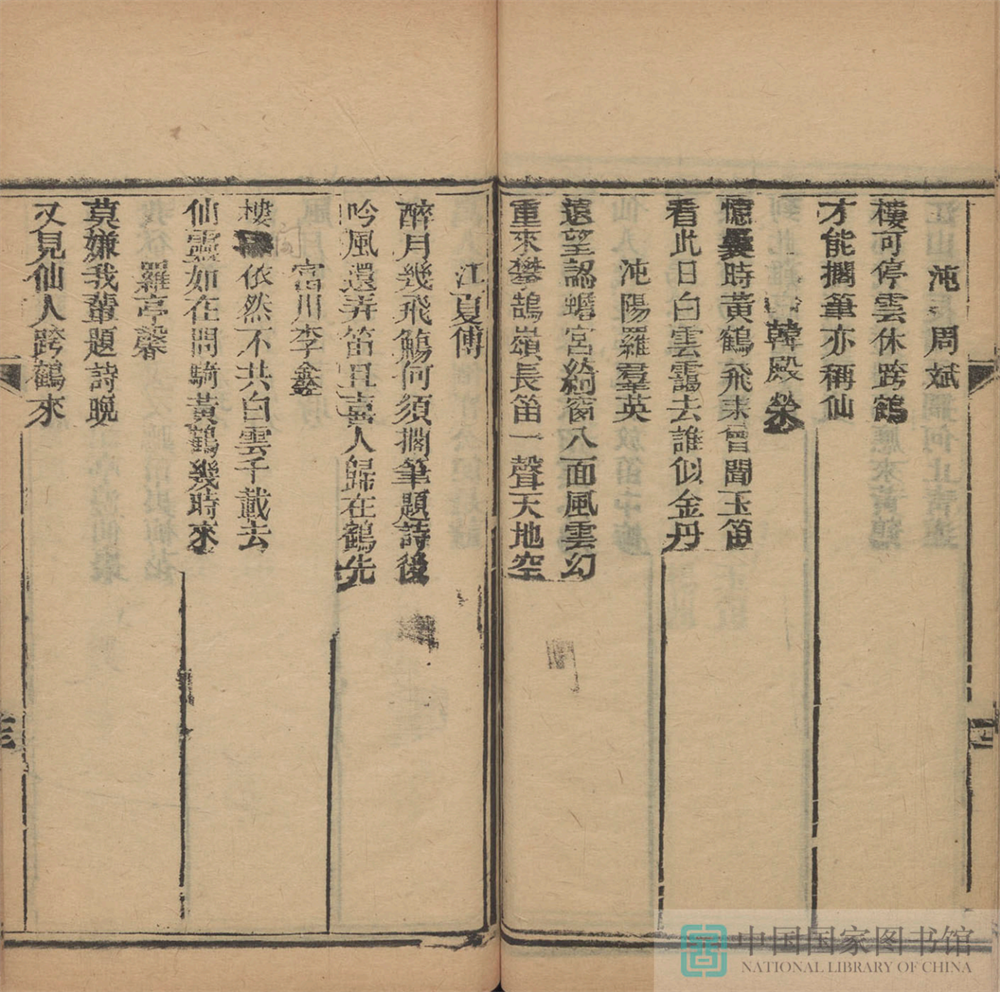 沌 周斌
樓可停雲休跨鶴
才能擱筆亦稱仙
韓殿榮
憶曩時黃鶴飛未曾聞玉笛
看此日白雲靄去誰似金丹
沌陽羅羣英
遠望認蟾宮綺窗八面風雲幻
重來攀鵠嶺長笛一聲天地空
江夏傅
醉月幾飛觴何須擱筆題詩後
吟風還弄笛且喜人歸在鶴先
富川李金
樓 依然不共白雲千載去
仙靈如在問騎黃鶴幾時來
羅亭馨
莫嫌我輩題詩晚
又見仙人跨鶴來
中国国家图书馆
NATIONAL LIBRARY OF CHINA